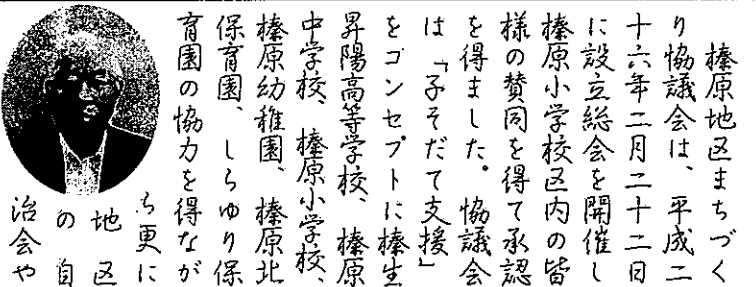 榛原地区まちづく
り協議会は、平成二
十六年二月二十二日
に設立総会を開催し
榛原小学校区内の皆
様の賛同を得て承認
を得ました。協議会
は「子そだて支援」
をコンセプトに榛生
昇陽高等学校、榛原
中学校、榛原小学校、
榛原幼稚園、榛原北
保育園、しらゆり保
育園の協力を得なが
ら更に
地区
の自
治会や